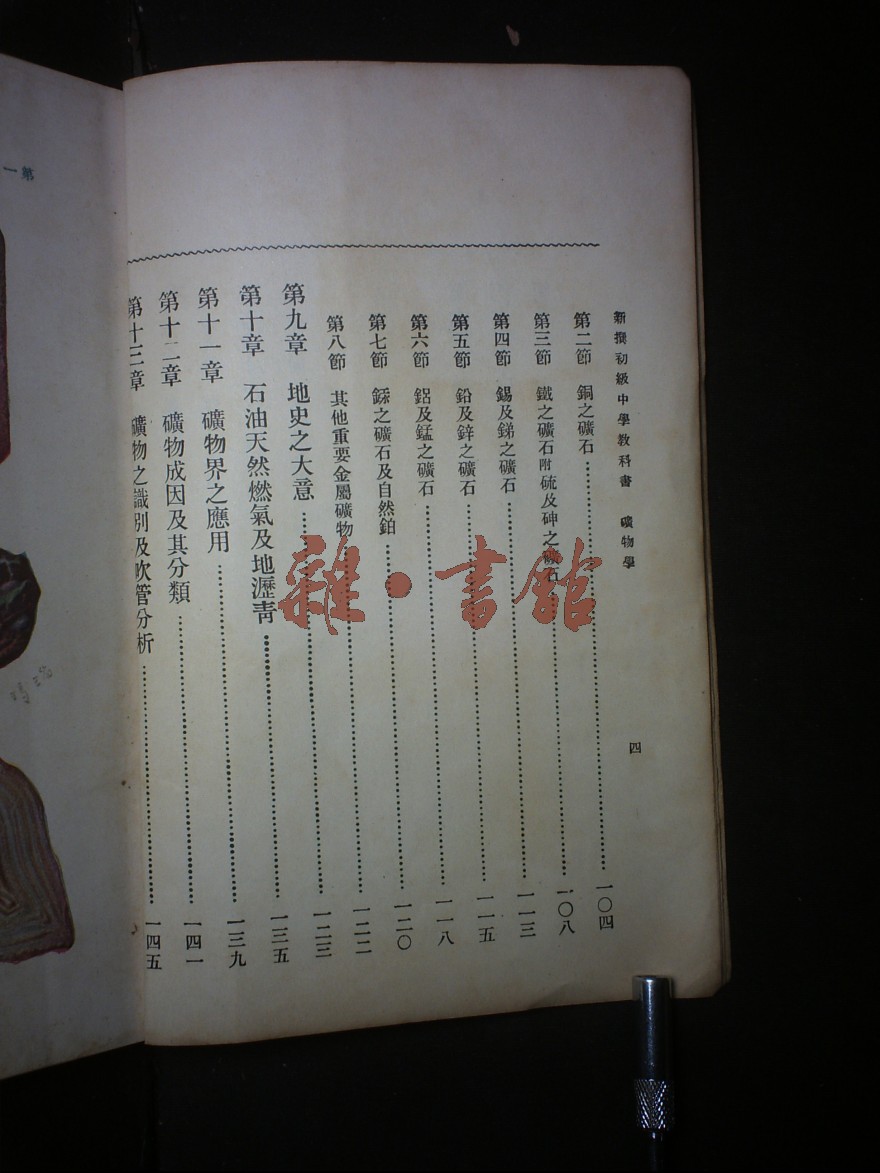 新撰初級中學教科書　礦物學
四
第二節　銅之礦石……一〇四
第三節　鐵之礦石附硫及砷之礦石……一〇八
第四節　錫及銻之礦石……一一三
第五節　鉛及鋅之礦石……一一五
第六節　鋁及錳之礦石……一一八
第七節　鎳之礦石及自然鉑……一二〇
第八節　其他重要金屬礦物……一二二
第九章　地史之大意……一二三
第十章　石油天然燃氣及地瀝青……一三五
第十一章　礦物界之應用……一三九
第十二章　礦物成因及其分類……一四一
第十三章　礦物之識別及吹管分析……一四五
第一
雜·書館